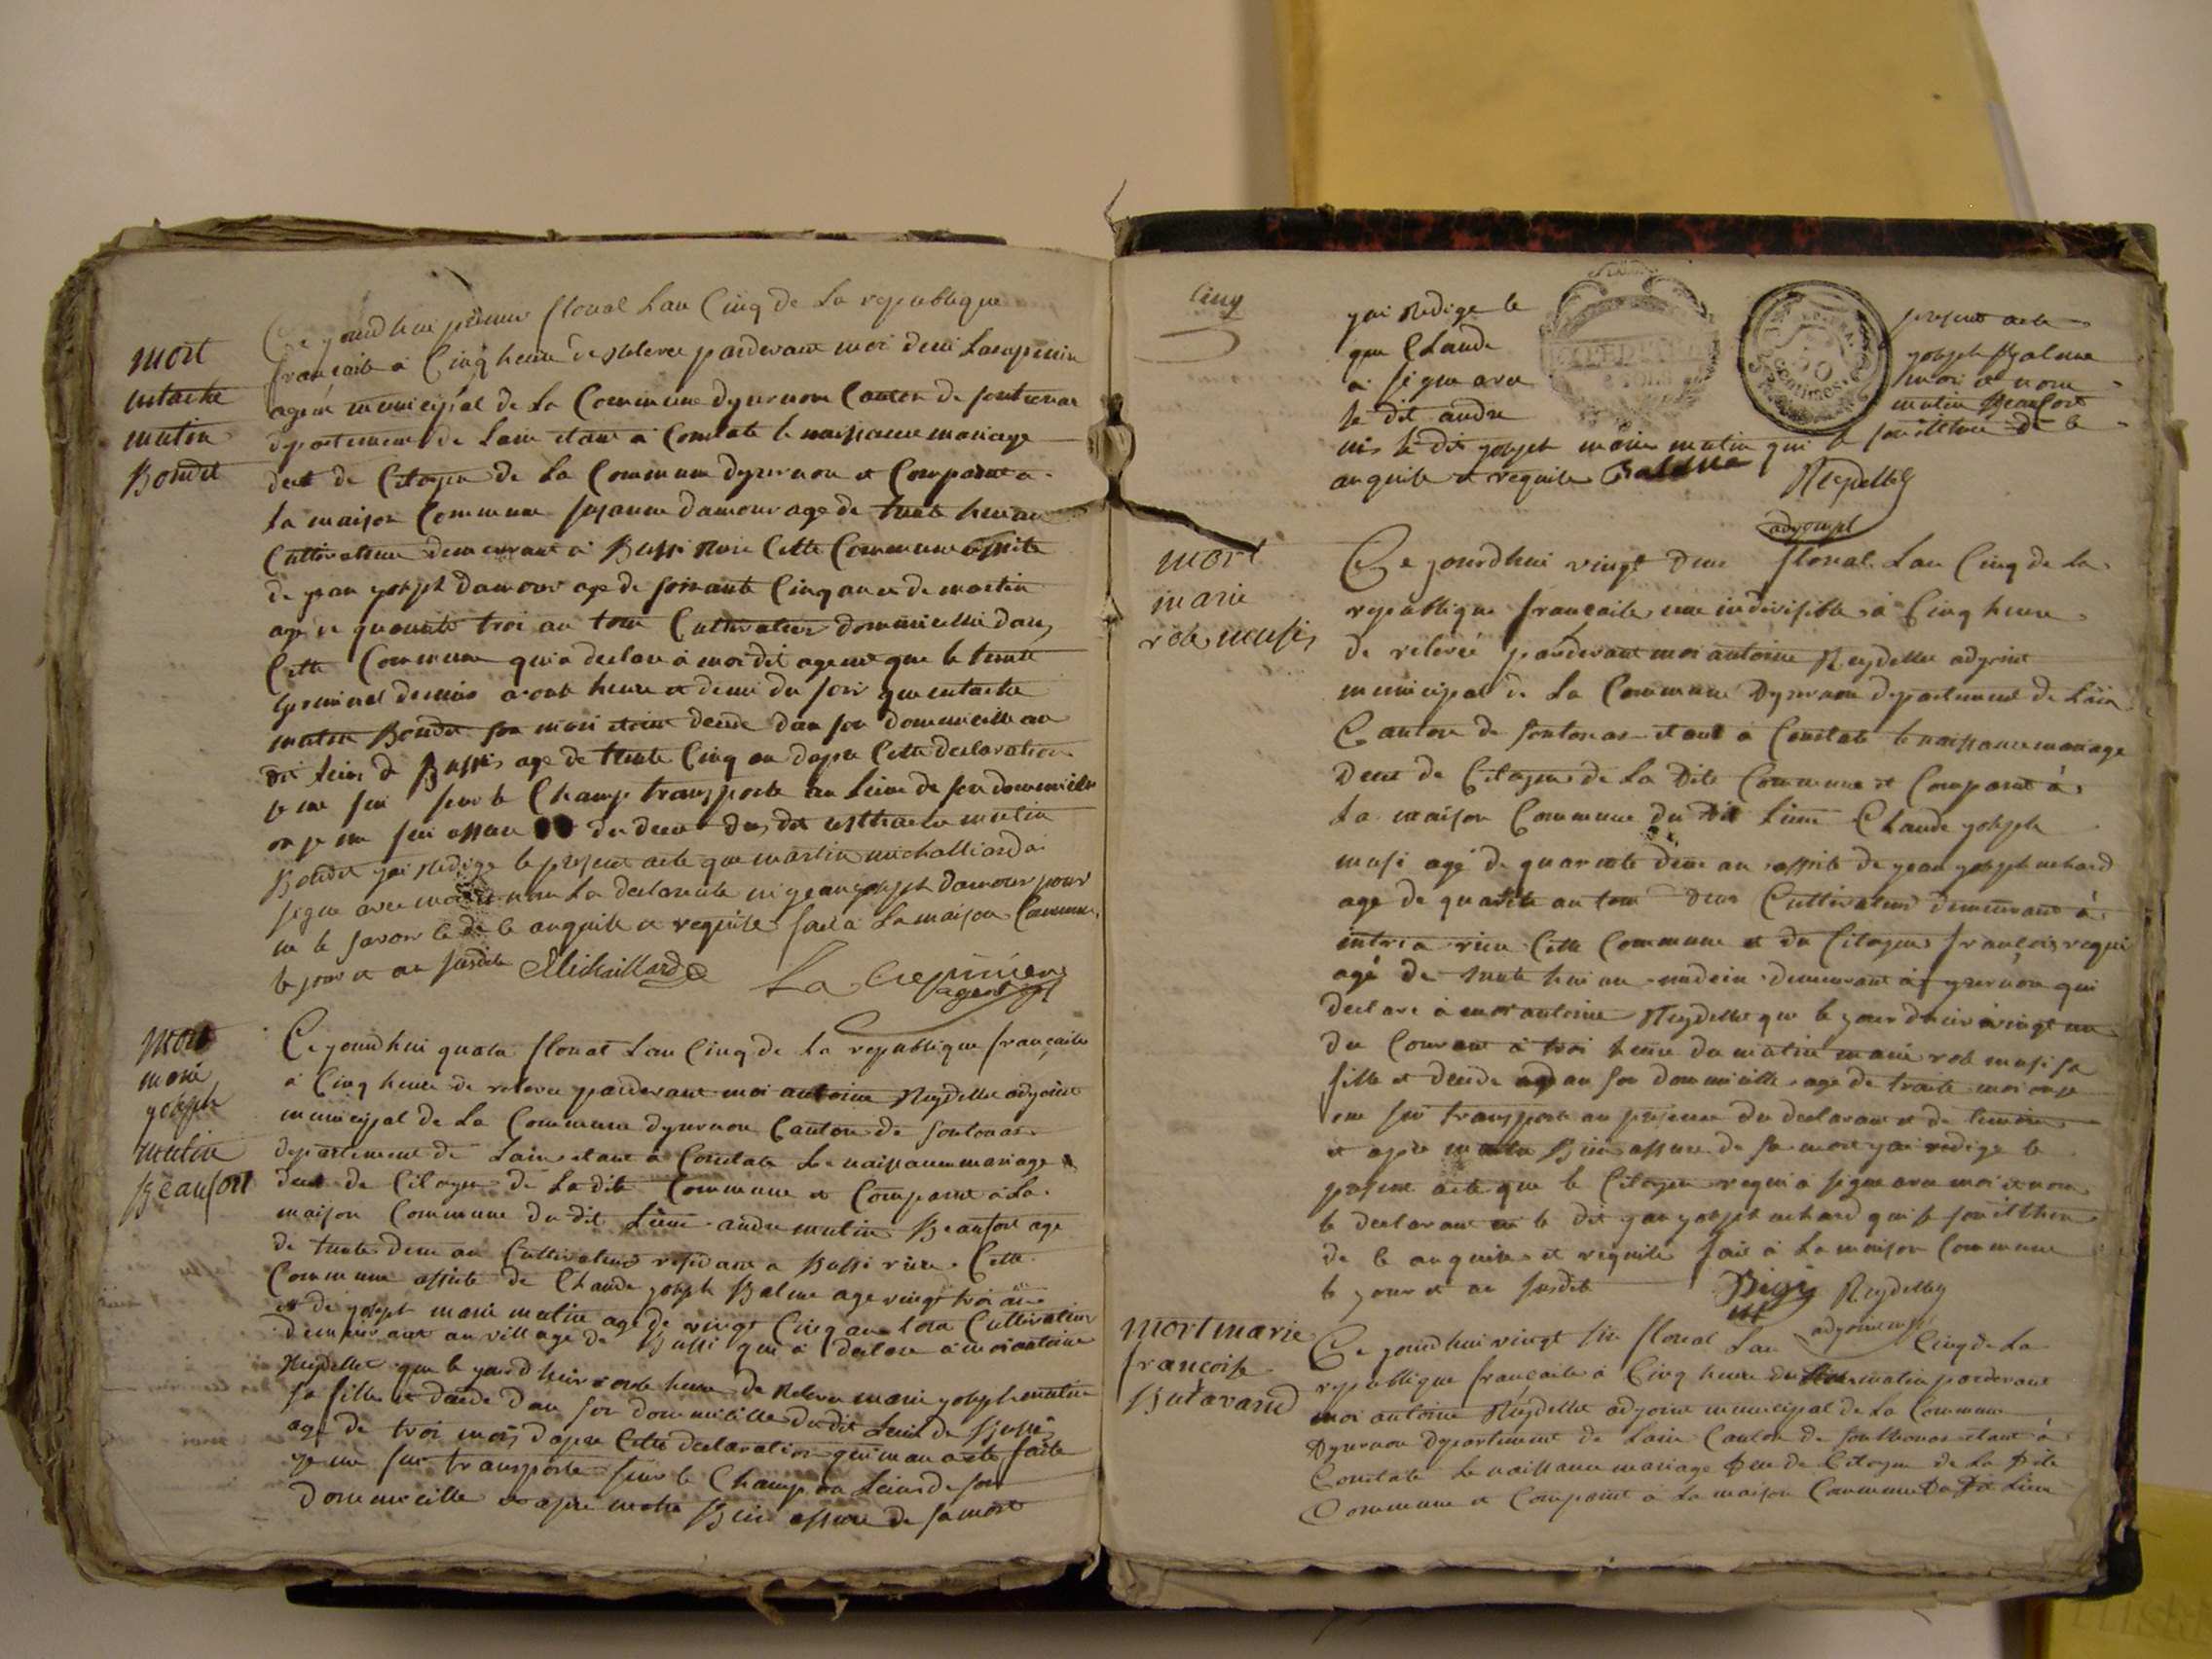 mort
ustache
mutin
Bondet
Ce jourdhui premier floreal Lan Cinq de la republique
francaise a Cinq heure de relevee pardevant moi deni Lacrepinier
agent municipal de la Commune dyzernore Canton de sontonas
departement de Lain etant a Constate le naissance mariage
dect de Citoyen de la Commune dyzernore et Comparut a
la maison Commune susanne damour age de trente heu an
Cultivateure demeurant a Bussi riere Cette Commune assisté
de jean joseph damour age de soissante Cinq an et de martin
age de quarante troi an tous Cultivateur dommicellie dans
Cette Commune qui a declare a moi dit agent que le trente
germinal dernier a onze heure et demi du soir que ustache
mutin Bondet son mari etoient decede dan son dommicille au
dit lieus de Bussi age de trente Cinq an dapre Cette declaration
je me sui sur le Champ transporte au Lieu de son dommicille
ou je me sui assure du decet du dit usthache mutin
Bondet jai redige le present acte que martin michalliard a
signe avec moi et non la declarante ni jean joseph damour pour
ne le savoir de le anquise et requise fait a la maison Commune
le jour et an susdite Michaillard La Crepinier
agent
mort
marie
joseph
mutin
Beaufort
Ce jourdhui quatre floreal Lan Cinq de la republique francaise
a Cinq heure de relevee pardevant moi antoine Reydellet adjoint
municipal de la Commune dyzernore Canton de sontonas
departement de Lain etant a Constate le naissance mariage
dect de Citoyen de Ladite Commune et Comparut a la
maison Commune du dit Lieu andre mutin Beaufort age
de trente deux an Cultivateur residant a Bussi riere Cette
Commune assisté de Claude joseph Balme age vingt troi an
et de joseph marie mutin age de vingt Cinq an tous Cultivateur
demeurant au village de Bussi qui a declare a moi antoine
Reydellet que le jourdhui a onze heure de relevee marie joseph mutin
sa fille et decede dan son dommicille du dit Lieu de Bussi
age de troi mois dapre Cette declaration qui man a ete faite
je me sui transporte sur le Champ au Lieu de son
dommicille et apre metre Bien assure de sa mort
Cinq
jai redige le present acte
que Claude joseph Balme
a signe avec moi et non
le dit andre mutin Beaufort
ni le dit joseph marie mutin qui le de le
anquise et requise Balme Reydellet
adjoint
mort
marie
rose musi
Ce jourdhui vingt deux floreal Lan Cinq de la
republique francaise une indivisible a Cinq heure
de relevee pardevant moi antoine Reydellet adjoint
municipal de la Commune Dyzernore departement de Lain
Canton de sontonas etant a Constate le naissance mariage
Dect de Citoyen de la Dite Commune et Comparut a
La maison Commune du dit Lieu Claude joseph
musi agé de quarente deux an assisté de jean joseph
age de quarante an tous Deux Cultivateur demeurant a
riere Cette Commune et du Citoyen francois regui
agé de trente hui an demeurant a yzernore qui
declare a moi antoine Reydellet que le jourdhui vingt un
du Courant a troi heure du matin marie rose musi sa
fille et decede dan son dommicille age de traite moi
me sui transporte au presence du declarant et de temoins
et apre metre Bien assure de sa mort jai redige le
present acte que le Citoyen regui a signe avec moi et non
le declarant ni le dit jean joseph
de le anquise et requise fait a la maison Commune
le jour et an susdite Reydellet
adjoint
mort marie
francoise
Butavand
Ce jourdhui vingt six floreal Lan Cinq de la
republique francaise a Cinq heure du matin pardevant
moi antoine Reydellet adjoint municipal de la Commune
Dyzernore Departement de Lain Canton de sonthonas etant a
Constate le naissance mariage Dect de Citoyen de la Dite
Commune et Comparut a la maison Commune Du Dit Lieu